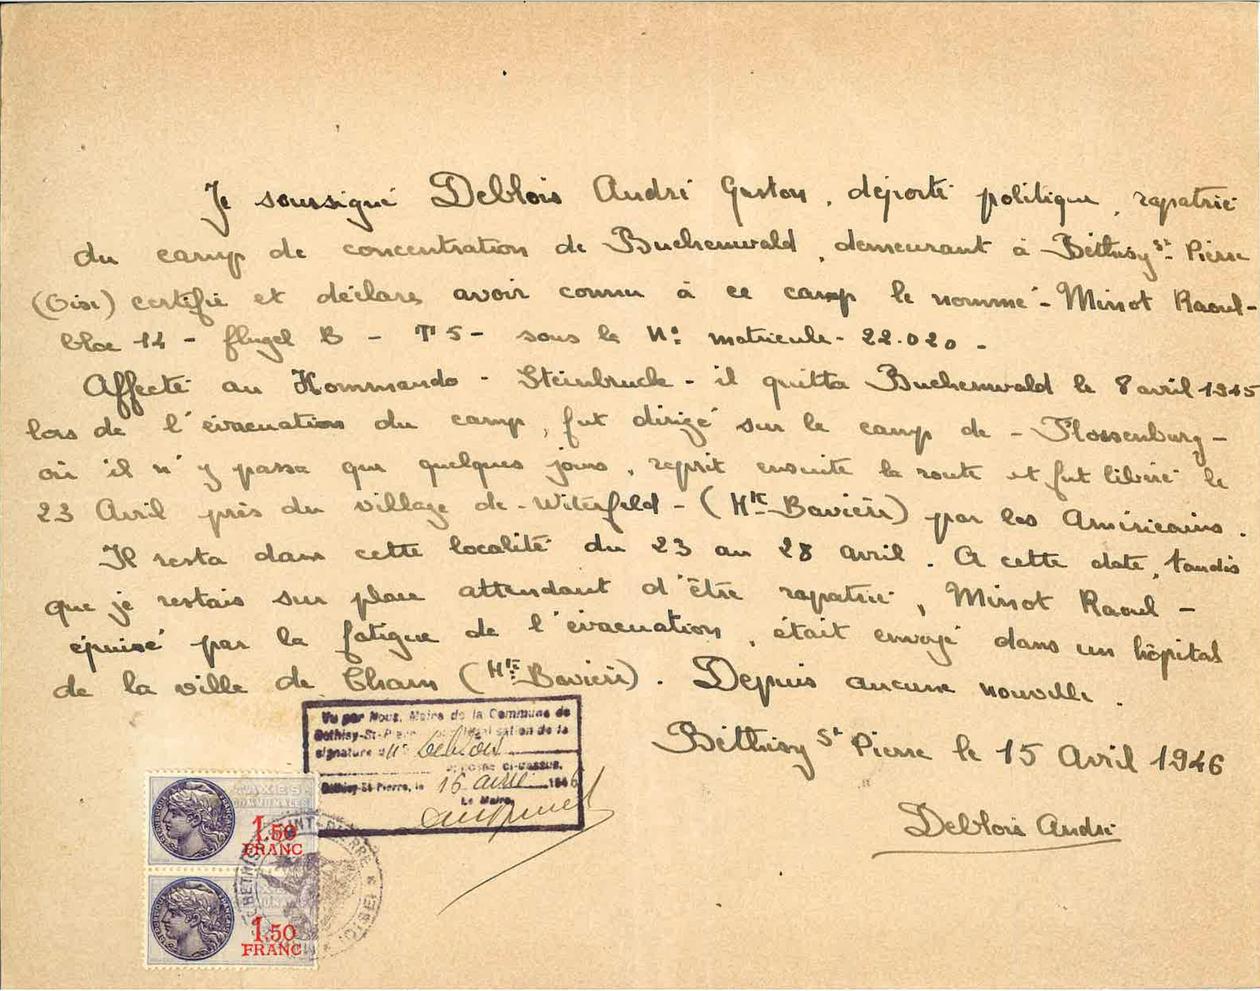 Je soussigné Deblois André Gaston, déporté politique, rapatrié
du camp de concentration de Buchenwald, demeurant à Béthisy St. Pierre
(Oise) certifie et déclare avoir connu à ce camp le nommé - Minot Raoul -
bloc 14 - flugel B - T5 - sous le N° matricule - 22.020 -
Affecté au Kommando - Steinbruck - il quitta Buchenwald le 8 avril 1945
lors de l'évacuation du camp, fut dirigé sur le camp de - Flossenburg -
où il n'y passa que quelques jours, reprit ensuite la route et fut libéré le
23 Avril près du village de - Witerfeld - (Hte Bavière) par les Américains.
Il resta dans cette localité du 23 au 28 avril. A cette date, tandis
que je restais sur place attendant d'être rapatrié, Minot Raoul -
épuisé par la fatigue de l'évacuation, était envoyé dans un hôpital
de la ville de Cham (Hte Bavière). Depuis aucune nouvelle.
Béthisy St Pierre le 15 Avril 1946
Deblois André
Vu par Nous, Maire de la Commune de
Béthisy-St-Pierre légalisation de la
signature Mr Deblois
apposée ci-dessus.
Béthisy-St-Pierre, le 16 avril 1946
Le Maire,
TAXES
COMMUNALES
1,50
FRANC
1,50
FRANC